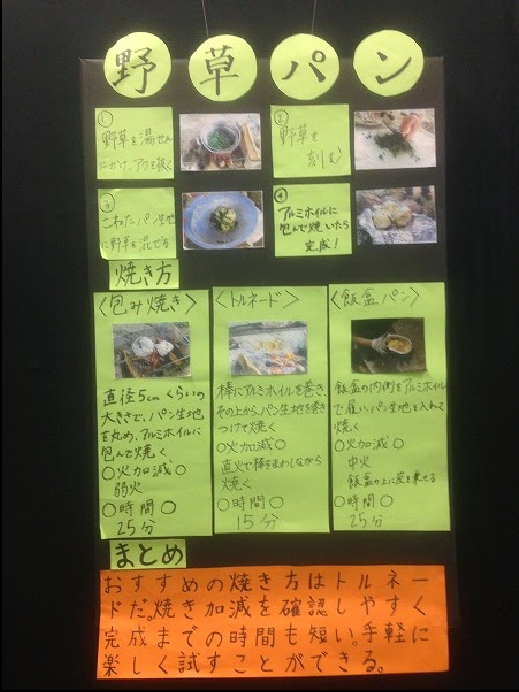 野草パン
①
野草を湯せん
にかけ、アクを抜く
②
野草を
刻む
③
こねたパン生地
に野草を混ぜる
④
アルミホイルに
包んで焼いたら
完成!
焼き方
〈包み焼き〉
直径5cmくらいの
大きさで、パン生地
を丸め、アルミホイルに
包んで焼く
○火加減○
弱火
○時間○
25分
〈トルネード〉
棒にアルミホイルを巻き、
その上からパン生地を巻き
つけて焼く
○火加減○
直火で棒をまわしながら
焼く
○時間○
15分
〈飯盒パン〉
飯盒の内側をアルミホイル
で覆い、パン生地を入れて
焼く
○火加減○
中火
飯盒の上に炭を乗せる
○時間○
25分
まとめ
おすすめの焼き方はトルネー
ドだ。焼き加減を確認しやすく
完成までの時間も短い。手軽に
楽しく試すことができる。